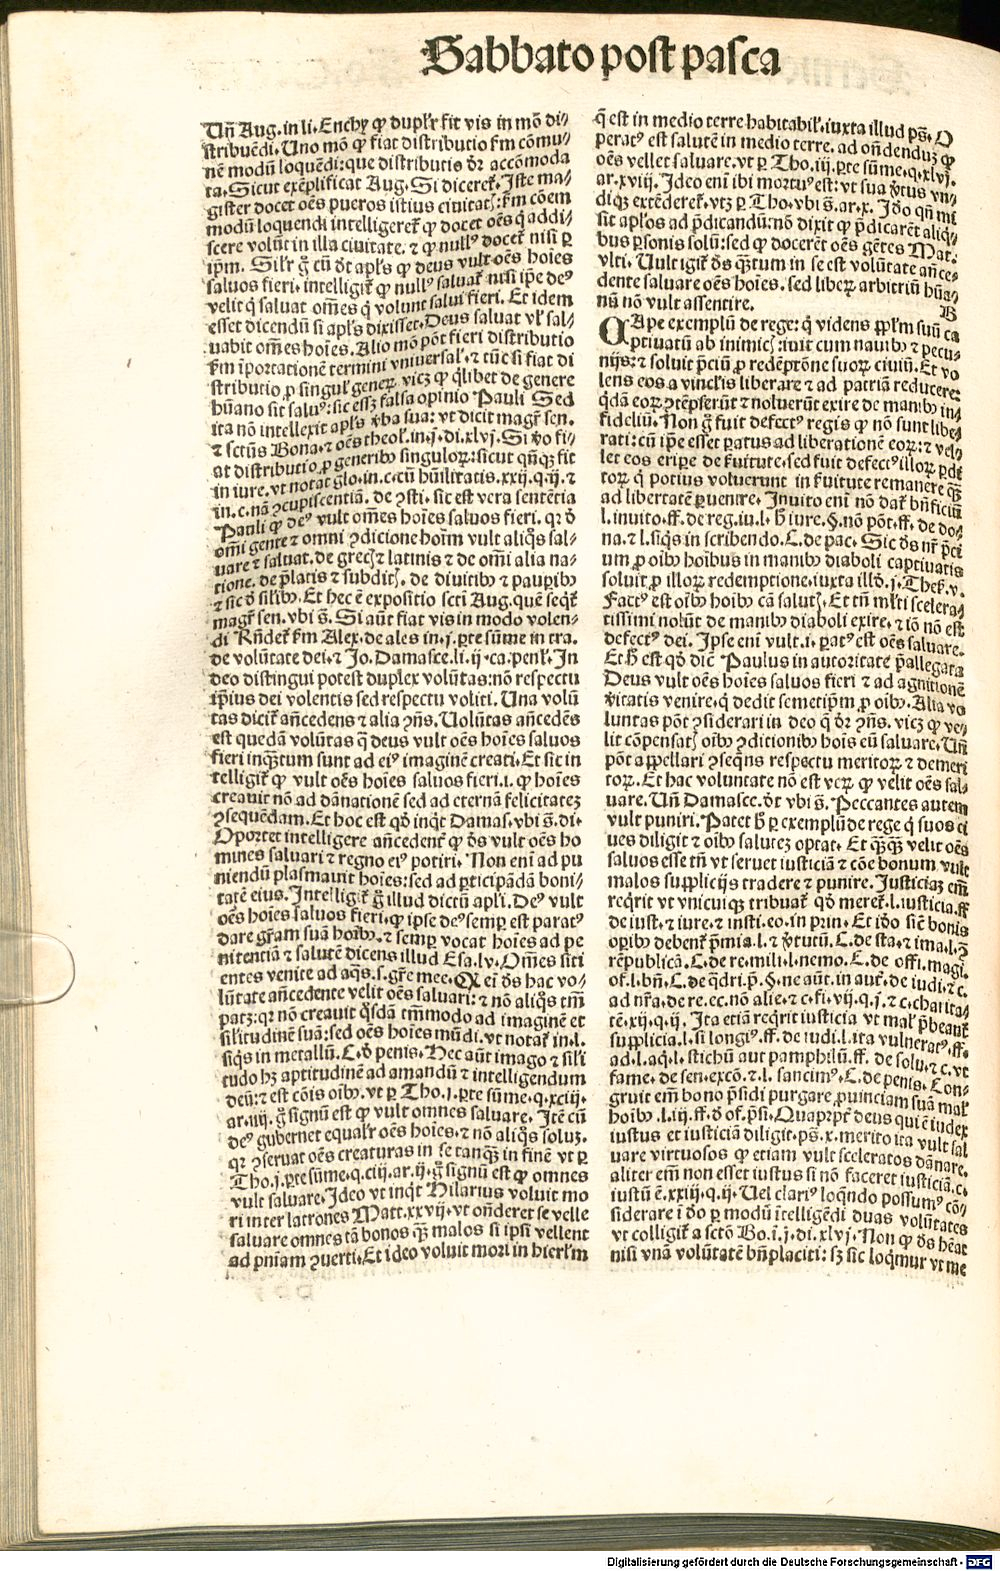 Sabbato post pasca
Uñ Aug. in li. Enchy ꝙ duplr̄ fit vis in mō di⸗
stribuēdi. Uno mō ꝙ fiat distributio fm cōmu⸗
nē modū loquēdi: que distributis dr̄ accōmoda
ta. Sicut exēplificat Aug. Si diceret̄. Iste ma⸗
gister docet oēs pueros istius ciuitatꝭ: fm cōem
modū loquendi intelligeret̄ ꝙ docet oēs q̇ addi⸗
scere volūt in illa ciuitate. ⁊ ꝙ nullꝰ docet̄ nisi ꝑ
ip̄m. Silr̄ g̊ cū dt̄ apl̄s ꝙ deus vult oēs hoīes
saluos fieri. intelligit̄ ꝙ nullꝰ saluat̄ nisi ip̄e deꝰ
velit q̇ saluat om̄es q̇ volunt salui fieri. Et idem
esset dicendū si apl̄s dixisset. Deus saluat vl̄ sal⸗
uabit om̄es hoīes. Alio mō pōt fieri distributio
fm īportationē termini vniuersal̄. ⁊ tūc si fiat di
stributio ꝓ singul̄ generꝝ. vicꝫ ꝙ q̇libet de genere
hūano sit saluꝰ: sic essꝫ falsa opinio Pauli Sed
ita nō intellexit apl̄s v̄ba sua: vt dicit magr̄ sen.
⁊ sctūs Bona. ⁊ oēs theol̄. in. j. di. xlvj. Si v̄o fi⸗
at distributio ꝓ generibꝰ singuloꝝ: sicut qn̄qꝫ fit
in iure. vt notat glo. in. c. cū hūilitatis. xxij. q. ij. ⁊
in. c. nā ꝯcupiscentiā. de ꝯsti. sic est vera sentētia
Pauli ꝙ deꝰ vult om̄es hoīes saluos fieri. qꝛ d̄
om̄i gente ⁊ omni ꝯdicione hoīm vult aliq̇s sal⸗
uare ⁊ saluat. de grecꝭ ⁊ latinis ⁊ de om̄i alia na⸗
tione. de p̄latis ⁊ subditꝭ. de diuitibꝰ ⁊ pauꝑibꝰ
⁊ sic d̄ silibꝰ. Et hec ē expositio scti Aug. quē seqt̄
magr̄ sen. vbi s̄. Si aūt fiat vis in modo volen⸗
di Rn̄det̄ fm Alex. de ales in. j. ꝑte sūme in tra.
de volūtate dei. ⁊ Jo. Damasce. li. ij. ca. penl̄. In
deo distingui potest duplex volūtas: nō respectu
ip̄ius dei volentis sed respectu voliti. Una volū
tas dicit̄ añcedens ⁊ alia ꝯn̄s. Uolūtas añcedēs
est quedā volūtas q̄ deus vult oēs hoīes saluos
fieri inqꝫtum sunt ad eiꝰ imaginē creati. Et sic in
telligit̄ ꝙ vult oēs hoīes saluos fieri. i. ꝙ hoīes
creauit nō ad dānationē sed ad eternā felicitatez
ꝯsequēdam. Et hoc est qd̄ inq̇t Damas. vbi s̄. di.
Oportet intelligere añcedent̄ ꝙ ds̄ vult oēs ho
mines saluari ⁊ regno eiꝰ potiri. Non em̄ ad pu
niendū plasmauit hoīes: sed ad ꝑticipādā boni⸗
tatē eius. Intelligit̄ g̊ illud dictū apl̄i. Deꝰ vult
oēs hoīes saluos fieri. ꝙ ipse deꝰ semꝑ est paratꝰ
dare gr̄am suā hoībꝰ. ⁊ semꝑ vocat hoīes ad pe
nitentiā ⁊ salutē dicens illud Esa. lv. Om̄es siti
entes venite ad aq̄s. s. gr̄e mee. Q ei ds̄ hac vo⸗
lūtate añcedente velit oēs saluari: ⁊ nō aliq̇s tm̄
patꝫ: qꝛ nō creauit q̇sdā tm̄modo ad imaginē et
silitudinē suā: sed oēs hoīes mūdi. vt notat̄ in. l.
siq̇s in metallū. C. d̄ penis. Hec aūt imago ⁊ sili
tudo hꝫ aptitudinē ad amandū ⁊ intelligendum
deū: ⁊ est cōis oībꝰ. vt ꝑ Tho. j. ꝑte sūme. q. xciij.
ar. iiij. g̊ signū est ꝙ vult omnes saluare. Itē cū
deꝰ gubernet equalr̄ oēs hoīes. ⁊ nō aliq̇s soluꝫ.
qꝛ ꝯseruat oēs creaturas in se tanqꝫ in finē vt ꝑ
Tho. j. ꝑte sūme. q. ciij. ar. ij. g̊ signū est ꝙ omnes
vult saluare. Ideo vt inq̇t Hilarius voluit mo
ri inter latrones Matt. xxvij. vt on̄deret se velle
saluare omnes tā bonos qꝫ malos si ip̄i vellent
ad pn̄iam ꝯuerti. Et ideo voluit mori in hierl̄m
q̄ est in medio terre habitabil̄. iuxta illud ps̄. O
peratꝰ est salutē in medio terre. ad on̄dendū ꝙ
oēs vellet saluare. vt ꝑ Tho. iij. ꝑte sūme. q. xlvj.
ar. xviij. Ideo eni ibi mortuꝰ est: vt sua v̄tus vn⸗
diqꝫ extēderet̄. vtꝫ ꝑ Tho. vbi s̄. ar. x. Id̄o qn̄ mi
sit apl̄os ad p̄dicandū: nō dixit ꝙ p̄dicarēt aliq̇⸗
bus ꝑsonis solū: sed ꝙ docerēt oēs gētes Mat.
vlti. Uult igit̄ ds̄ qꝫtum in se est volūtate añce⸗
dente saluare oēs hoīes. sed liberꝝ arbitriū hūa⸗
nū nō vult assentire.
B
Cape exemplū de rege: q̇ videns ppl̄m suū ca
ptiuatū ab inimicꝭ: iuit cum nauibꝰ ⁊ pecu⸗
nijs: ⁊ soluit p̄ciū ꝓ redēptōne suoꝝ ciuiū. Et vo
lens eos a vinclis liberare ⁊ ad patriā reducere:
q̇dā eoꝝ ꝯtēpserūt ⁊ noluerūt exire de manibꝰ in⸗
fideliū. Non g̊ fuit defectꝰ regis ꝙ nō sunt libe⸗
rati: cū ip̄e esset ꝑatus ad liberationē eoꝝ: ⁊ vel⸗
let eos eriꝑe de s̄uitute. sed fuit defectꝰ illoꝝ ꝑdi
toꝝ q̇ potius voluerunt in s̄uitute remanere qꝫ
ad libertatē ꝑuenire. Inuito eni nō dat̄ bn̄ficiū
l. inuito. ff. de reg. iu. l. hʼ iure. §. nō pōt. ff. de do⸗
na. ⁊ l. siq̇s in scribendo. C. de pac. Sic ds̄ nr̄ p̄ci
um ꝓ oībꝰ hoībus in manibꝰ diaboli captiuatis
soluit ꝓ illoꝝ redemptione. iuxta illd̄. j. Thes̄. v.
Factꝰ est oībꝰ hoībꝰ cā salutꝭ. Et tn̄ ml̄ti scelera⸗
tissimi nolūt de manibꝰ diaboli exire. ⁊ iō nō est
defectꝰ dei. Ipse eni vult. i. ꝑatꝰ est oēs saluare.
Et hʼ est qd̄ dic̄ Paulus in autoritate p̄allegata
Deus vult oēs hoīes saluos fieri ⁊ ad agnitionē
v̄itatis venire. q̇ dedit semetip̄m ꝓ oībꝰ. Alia vo
luntas pōt ꝯsiderari in deo q̄ dr̄ ꝯn̄s. vicꝫ ꝙ ve⸗
lit cōpensatꝭ oībꝰ ꝯditionibꝰ hoīs eū saluare. Uñ
pōt appellari ꝯseq̄ns respectu meritoꝝ ⁊ demeri
toꝝ. Et hac voluntate nō est veꝝ ꝙ velit oēs sal⸗
uare. Uñ Damasce. dt̄ vbi s̄. Peccantes autem
vult puniri. Patet hʼ ꝑ exemplū de rege q̇ suos ci
ues diligit ⁊ oībꝰ salutez optat. Et qꝫqꝫ velit oēs
saluos esse tn̄ vt seruet iusticiā ⁊ cōe bonum vult
malos supplicijs tradere ⁊ punire. Justiciaꝫ em̄
req̇rit vt vnicuiqꝫ tribuat̄ qd̄ meret̄. l. iusticia. ff
de iust. ⁊ iure. ⁊ insti. eo. in prin. Et id̄o siē bonis
oꝑibꝰ debent̄ p̄mia. l. ⁊ v̄tutū. C. de sta. ⁊ ima. l. ꝫ
rēpublicā. C. de re. mili. l. nemo. C. de offi. magi.
of. l. bn̄. C. de q̇dri. p̄. §. ne aūt. in aut̄. de iudi. ⁊ c.
ad nr̄a. de re. ec. nō alie. ⁊ c. fi. vij. q. j. ⁊ c. charita⸗
tē. xij. q. ij. Ita etiā req̇rit iusticia vt mal̄ p̄beant̄
supplicia. l. si longiꝰ. ff. de iudi. l. ita vulneratꝰ. ff.
ad. l. aq. l. stichū aut pamphilū. ff. de solu. ⁊ c. vt
fame. de sen. excō. ⁊. l. sancimꝰ. C. de penis. Con⸗
gruit em̄ bono p̄sidi purgare ꝓuinciam suā mal̄
hoībꝰ. l. iij. ff. d̄ of. p̄si. Quapr̄pt̄ deus qui ē iudex
iustus et iusticiā diligit. ps̄. x. merito ita vult sal
uare virtuosos ꝙ etiam vult sceleratos dānare.
aliter em̄ non esset iustus si nō faceret iusticiā. c.
iustū ē. xxiij. q. ij. Uel clariꝰ loq̄ndo possumꝰ cō⸗
siderare ī d̄o ꝑ modū ītelligēdi duas volūtates
vt colligit̄ a sctō Bo. ī. j. di. xlvj. Non ꝙ ds̄ heāt
nisi vnā volūtatē bn̄placiti: sꝫ sic loq̇mur vt me
Digitalisierung gefördert durch die Deutsche Forschungsgemeinschaft - DFG